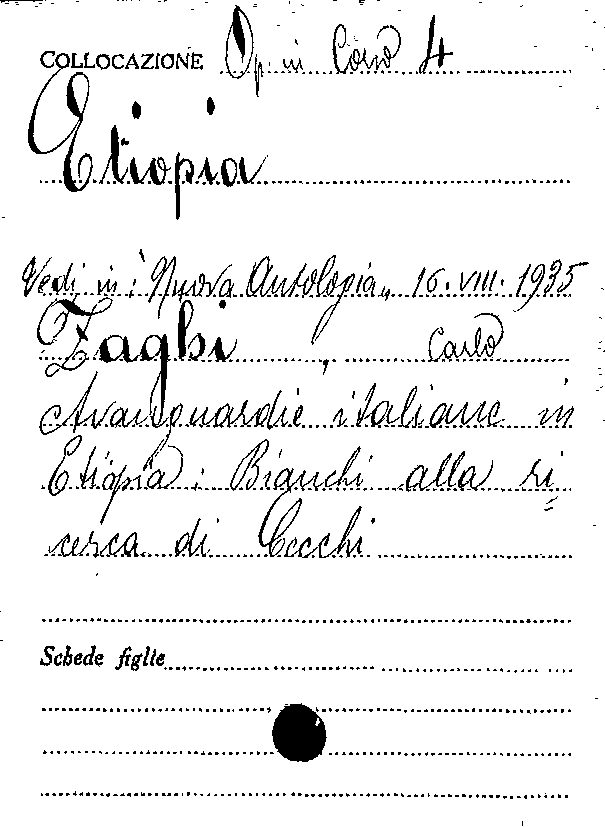 COLLOCAZIONE Op. in Corso 4
Etiopia
Vedi in: "Nuova Antologia„ 16. VIII. 1935
Zaghi, Carlo
Avanguardie italiane in
Etiopia: Bianchi alla ri=
cerca di Cecchi
Schede figlie